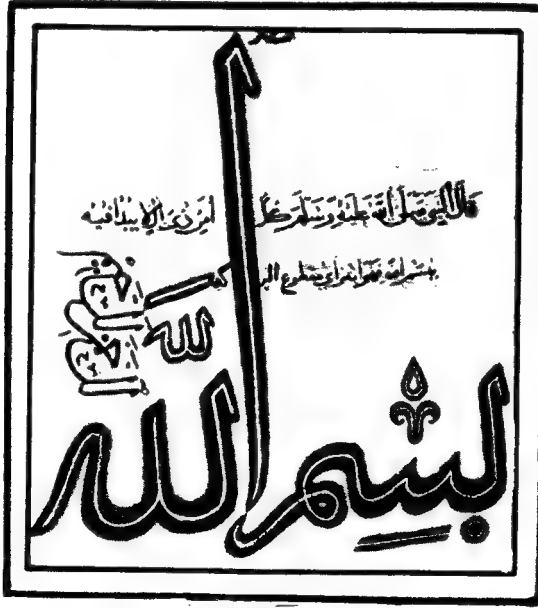 قال النبي صلى الله عليه وسلم كل أمر ذي بال لا يبدأ فيه
ببسم الله فهو أبتر أي مقطوع البركة
بسم الله
الرحمن
الرحيم